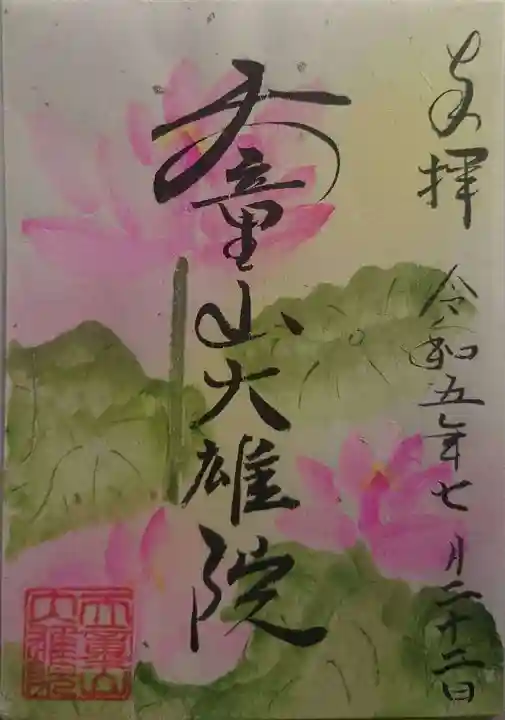 奉拝 令和五年七月二十二日
天童山大雄院
天童山
大雄院